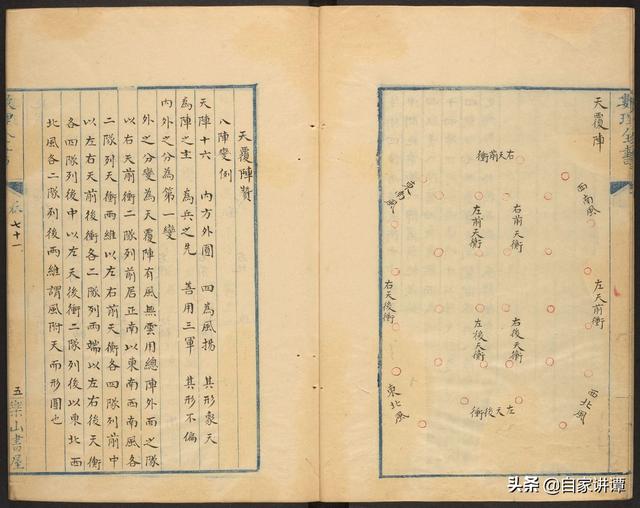 數理全書
天覆陣
右天前衝
西南風
東南風
左前天衝
右前天衝
左天前衝
右天後衝
左後天衝
右後天衝
西北風
東北風
左天後衝
天覆陣贊
八陣變例
天陣十六 內方外圓 四為風揚 其形象天
為陣之主 為兵之先 善用三軍 其形不偏
內外之分為第一變
外之分變為天覆陣有風無雲用總陣外面之隊
以右天前衝二隊列前居正南以東南西南風各
二隊列天衝兩維以左右前天衝各四隊列前中
以左右天前後衝各二隊列兩端以左右後天衝
各四隊列後中以左天後衝二隊列後以東北西
北風各二隊列後兩維謂風附天而形圓也
七十一
五樂山書屋
头条 @自家讲谭